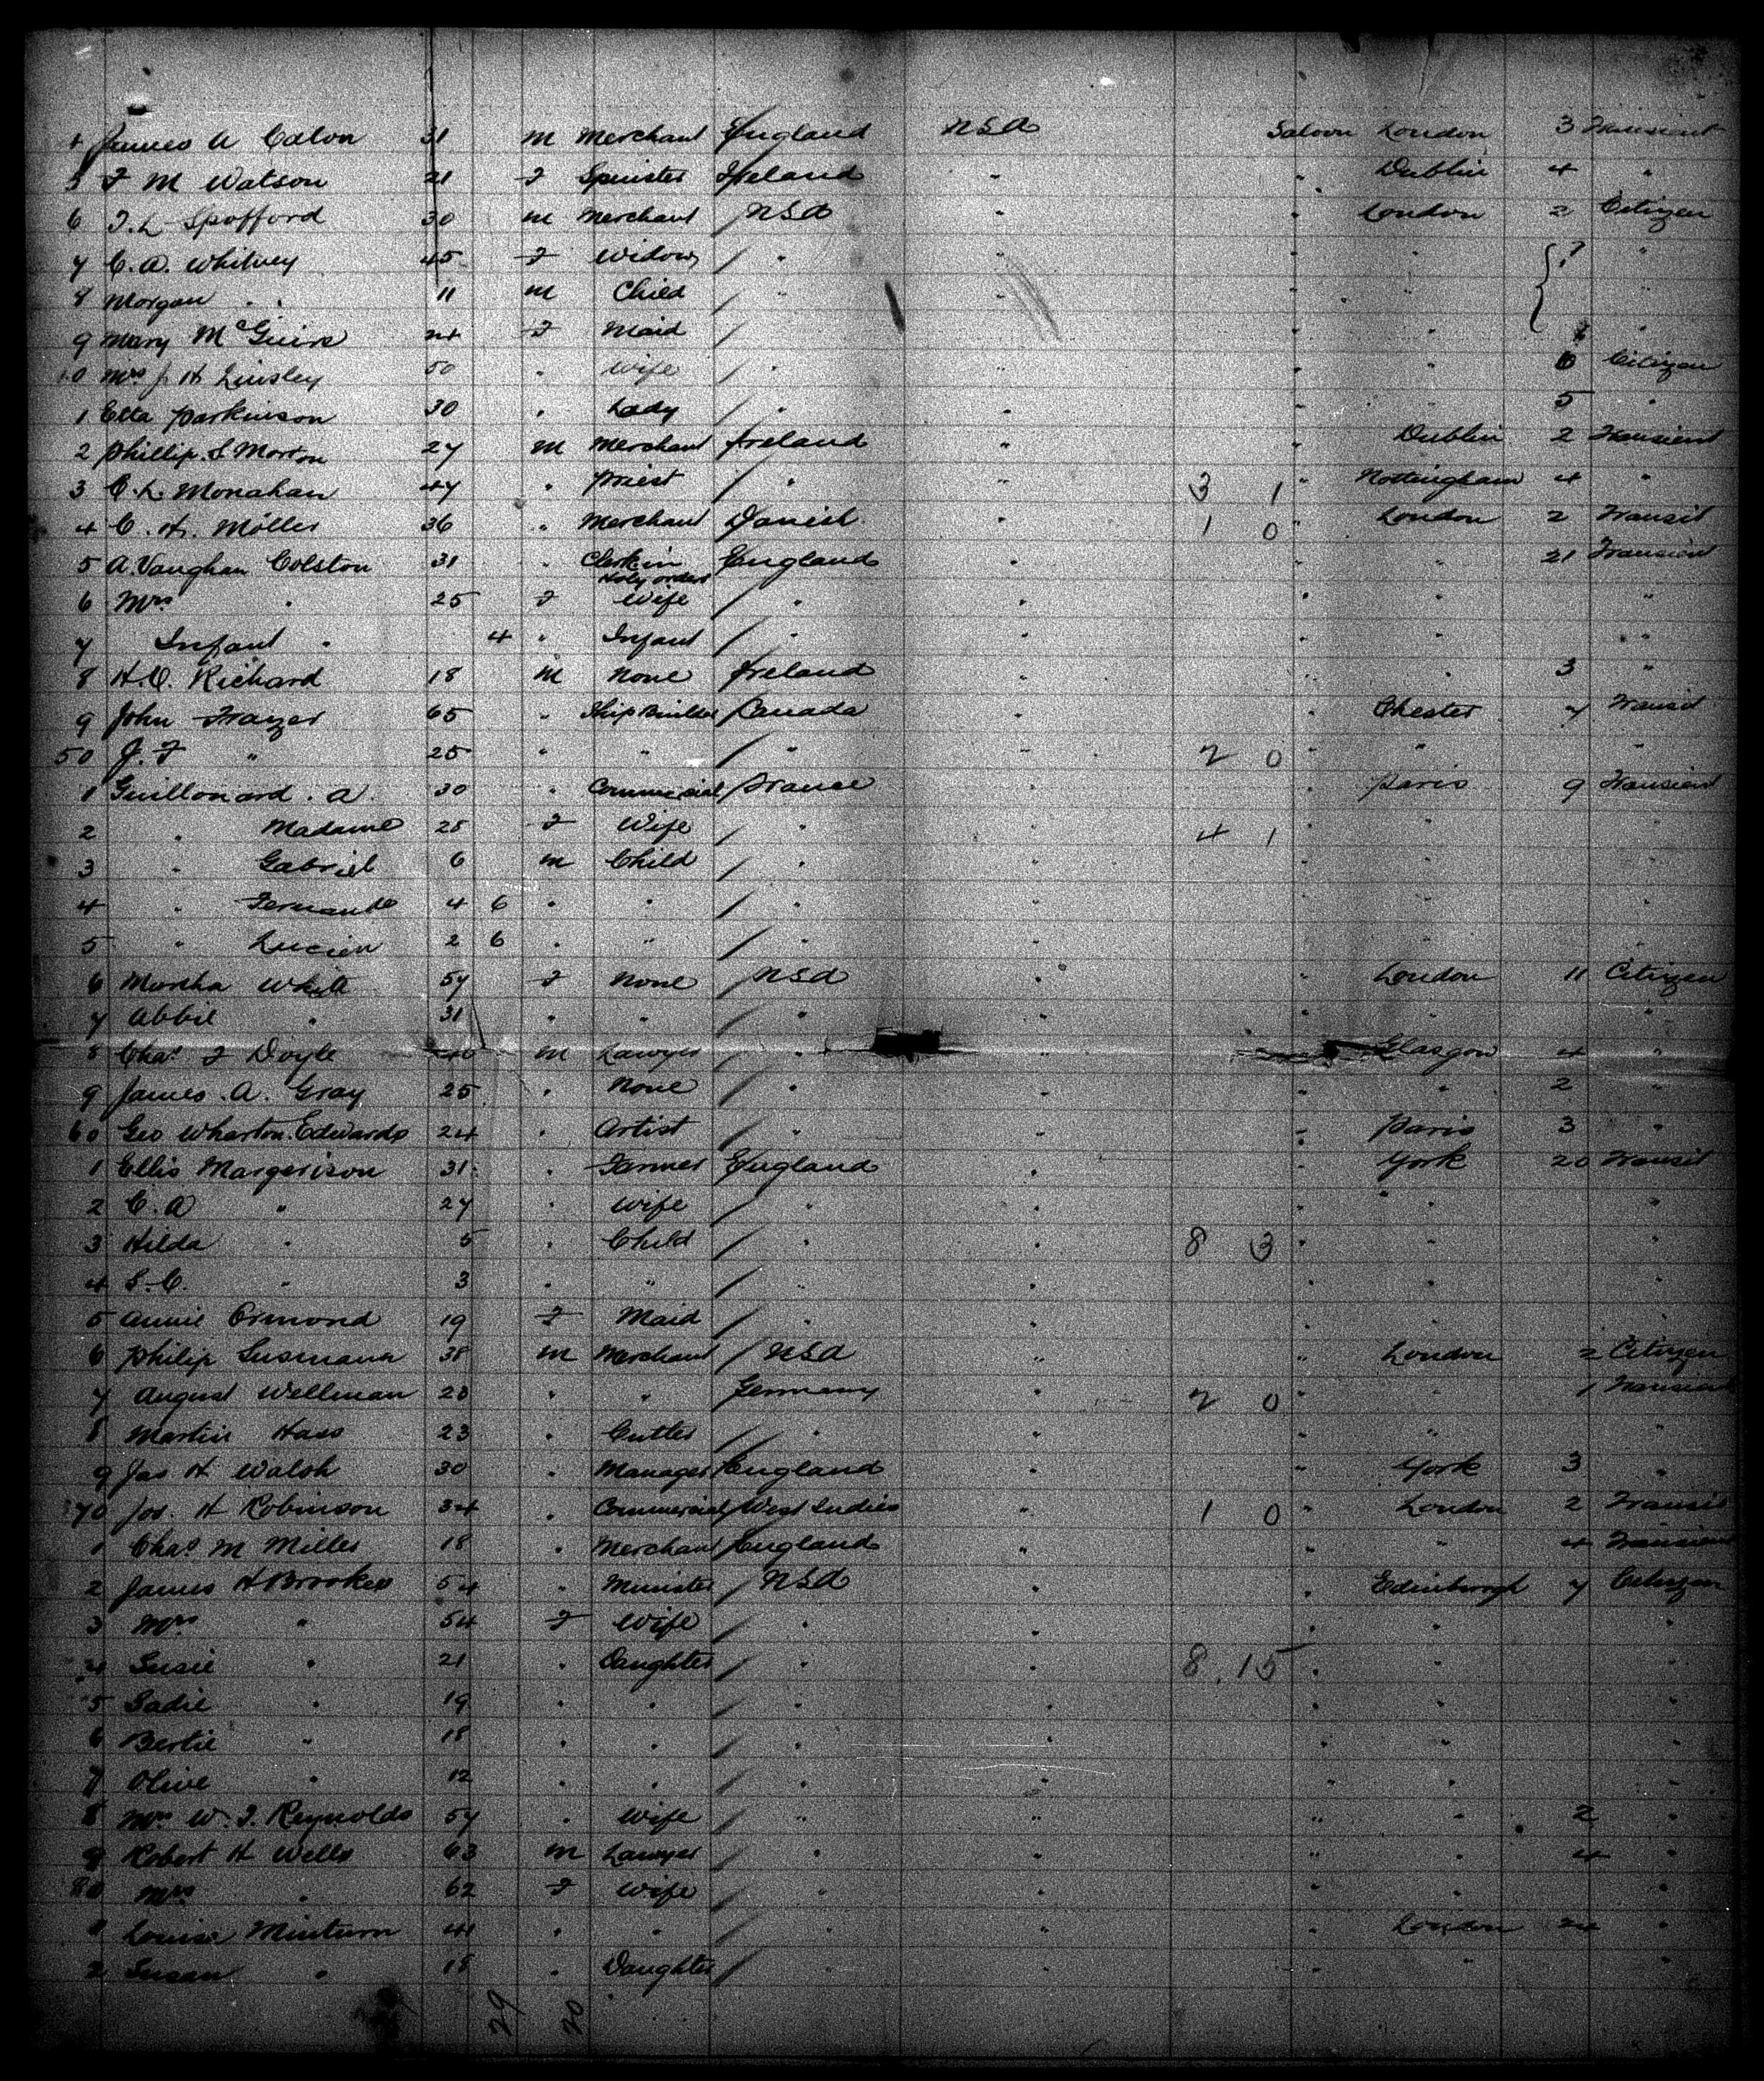 4 James A Colon 31 m Merchant England USA Saloon London 3 Transient
5 F M Watson 21 F Spinster Ireland " " Dublin 4 "
6 F. L Spofford 30 m Merchant USA " " London 2 Citizen
7 C. A. Whitney 45 F Widow " " " " ? "
8 Morgan " 11 m Child " " " " "
9 Mary McGuire 24 F Maid " " "
40 Mrs J H Linsley 50 " Wife " " " " 6 Citizen
1 Etta Parkinson 30 " Lady " " " 5 "
2 Phillip. S Morton 27 m Merchant Ireland " " Dublin 2 Transient
3 C. L. Monahan 47 " Priest " " 3 1 " Nottingham 4 "
4 C. H. Möller 36 " Merchant Danish " 1 0 " London 2 Transit
5 A. Vaughan Colston 31 " Clerk in Holy orders England " " 21 Transient
6 Mrs " 25 F Wife " " " " "
7 Infant " 4 " Infant " " " " "
8 H. C. Richard 18 m None Ireland " " " 3 "
9 John Frazer 65 " Ship Builder Canada " Chester 7 Transit
50 J. F " 25 " " " " 2 0 " " "
1 Guillonard. A. 30 " Commercial France " Paris 9 Transient
2 " Madame 28 F Wife " 4 1 " "
3 " Gabriel 6 m Child " " "
4 " Fernande 4 6 " " " " "
5 " Lucien 2 6 " " " " " " "
6 Martha White 57 F None USA " " London 11 Citizen
7 Abbie " 31 " " " " " " "
8 Chas. F Doyle 40 m Lawyer " " " Glasgow 4 "
9 James. A. Gray 25 " None " " " " 2 "
60 Geo Wharton. Edwards 24 " Artist " " " Paris 3 "
1 Ellis Margerison 31 " Farmer England " " York 20 Transit
2 C. A " 27 " Wife " " " " "
3 Hilda " 5 " Child " " 8 3 " " "
4 S. C. " 3 " " " " " " "
5 Annie Ormond 19 F Maid " " " " "
6 Philip Susmann 38 m Merchant USA " " London 2 Citizen
7 August Wellman 28 " " Germany " 2 0 " " 1 Transient
8 Martin Hass 23 " Cutter " " " " "
9 Jas H Walsh 30 " Manager England " " York 3 "
70 Jos. H Robinson 34 " Commercial West Indies " 1 0 " London 2 Transit
1 Chas. M Miller 18 " Merchant England " " " 4 Transient
2 James H Brookes 54 " Minister USA " " Edinburgh 7 Citizen
3 Mrs " 54 F Wife " " " " "
4 Susie " 21 " Daughter " " 8. 15 " " "
5 Sadie " 19 " " " " " "
6 Bertie " 18 " " " " " " "
7 Olive " 12 " " " " " " "
8 Mrs W. F. Reynolds 57 " Wife " " " " 2 "
9 Robert H Wells 63 m Lawyer " " " 4 "
80 Mrs " 62 F Wife " " " " "
1 Louisa Minturn 41 " " " " " London 24 "
2 Susan " 18 " Daughter " " " " "
29 20